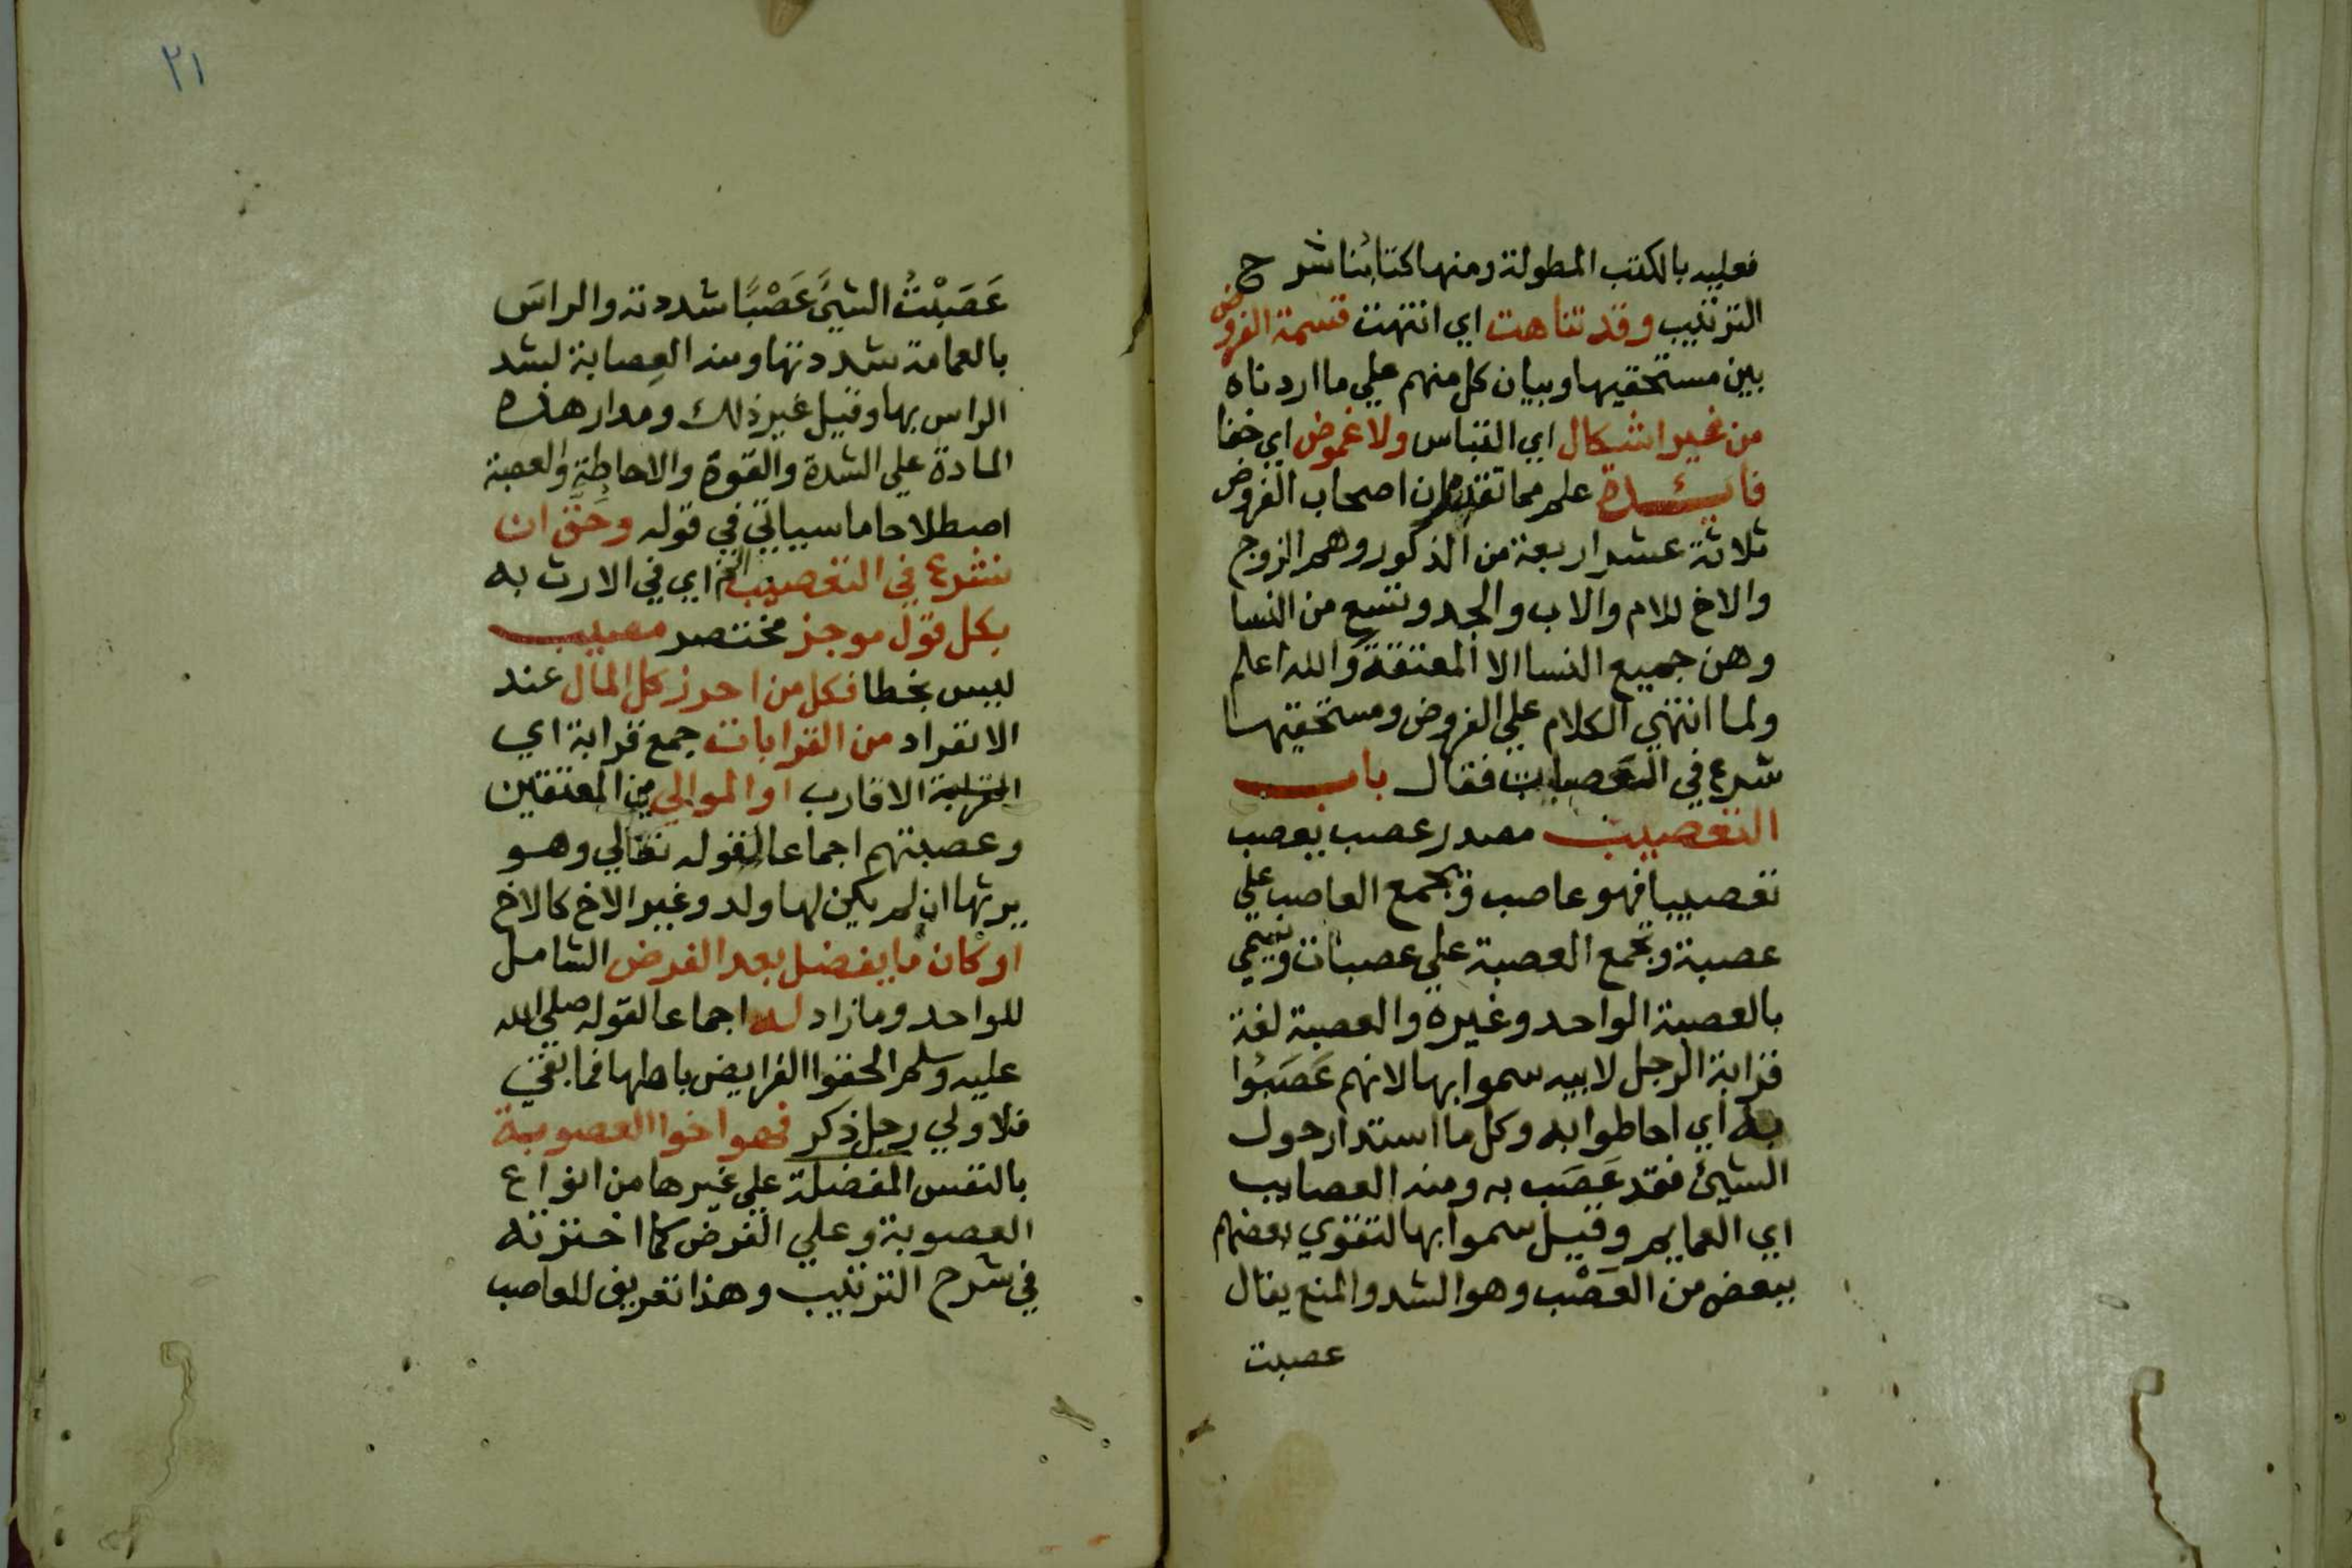 فعليه بالكتب المطولة ومنها كتابنا شرح
الترتيب وقد تناهت اي انتهت قسمة الفروض
بين مستحقيها وبيان كل منهم علي ما اردناه
من غير اشكال اي التباس ولا غموض اي خفا
فائدة علم مما تقدم ان اصحاب الفروض
ثلاثة عشر اربعة من الذكور وهم الزوج
والاخ للام والاب والجد وتسع من النسا
وهن جميع النسا الا المعتقة والله اعلم
ولما انتهي الكلام علي الفروض ومستحقيها
شرع في العصبات فقال باب
التعصيب مصدر عصب يعصب
تعصيبا فهو عاصب وتجمع العاصب علي
عصبة وتجمع العصبة علي عصبات ويسمي
بالعصبة الواحد وغيره والعصبة لغة
قرابة الرجل لابيه سموا بها لانهم عَصَبُوا
به اي احاطوا به وكل ما استدار حول
الشيئ فقد عَصَب به ومنه العصايب
اي العمايم وقيل سموا بها لتقوي بعضهم
ببعض من العَصْب وهو الشد والمنع يقال
عصبت
٢١
عَصَبْتُ الشيئَ عَصْبًا شددته والراسَ
بالعمامة شددتها ومنه العِصابة لشد
الراس بها وقيل غير ذلك ومدار هذه
المادة علي الشدة والقوة والاحاطة والعصبة
اصطلاحا ما سياتي في قوله وحَقَّ ان
نشرع في التعصيب الخ اي في الارث به
بكل قول موجز مختصر مصيب
ليس بخطا فكل من احرز كل المال عند
الانفراد من القرابات جمع قرابة اي
الاقارب او الموالي من المعتقين
وعصبتهم اجماعا لقوله تعالي وهو
يرثها ان لم يكن لها ولد وغير الاخ كالاخ
او كان ما يفضل بعد الفرض الشامل
للواحد وما زاد له اجماعا لقوله صلي الله
عليه وسلم الحقوا الفرايض باهلها فما بقي
فلاولي رجل ذكر فهو اخوا العصوبة
بالنفس المفضلة علي غيرها من انواع
العصوبة وعلي الفرض كما اخترته
في شرح الترتيب وهذا تعريف للعاصب